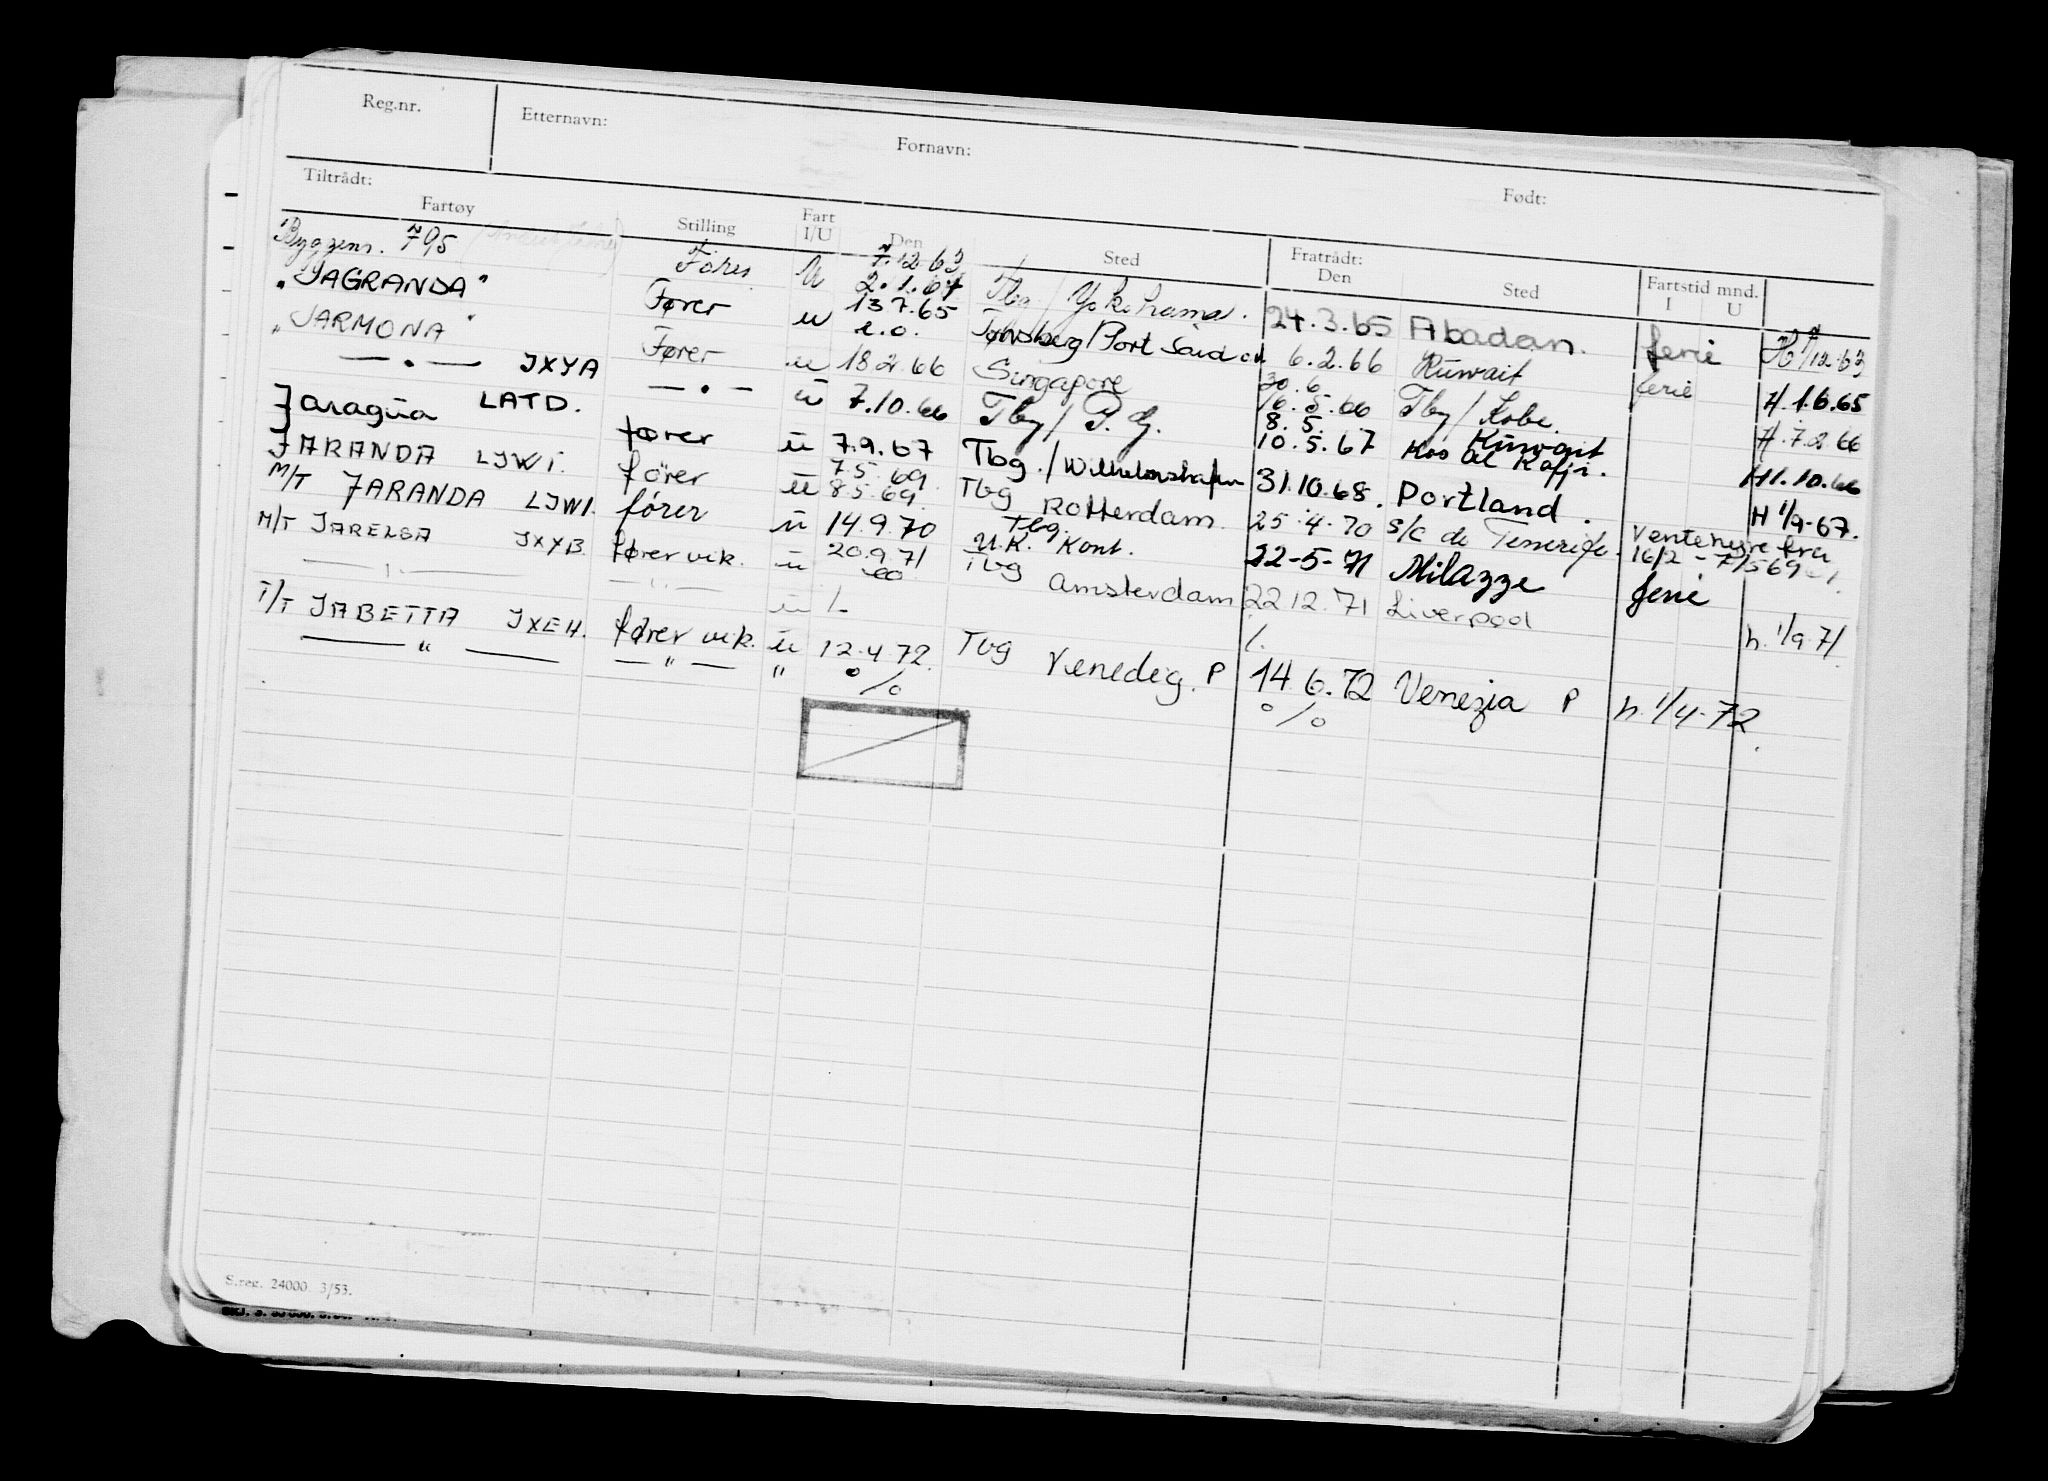 Reg.nr. Etternavn: Fornavn: Født:
Tiltrådt: Fratrådt:
Fartøy Stilling Fart I/U Den Sted Den Sted Fartstid mnd. I U
Byggenr. 795 Fører U 7.12.63 2.1.64 Tbg / Yokohama. 24.3.65 Abadan. ferie 12.63
"JAGRANDA" Fører u 13.7.65 e.o. Tønsberg/Port Said 6.2.66 Kuwait ferie H.1.6.65
"JARMONA" Fører u 18.2.66 Singapore 30.6. 16.5.66 Tbg / Kobe. H.7.2.66
— " — JXYA — " — u 7.10.66 Tbg / P.G. 8.5. 10.5.67 Kuwait H1.10.66
Jaragua LATD. fører u 7.9.67 Tbg. / Wilhelmshafen 31.10.68. Portland. H 1/9-67.
JARANDA LJWI. fører u 7.5.69. 8.5.69. Tbg Rotterdam. 25.4.70 S/C de Tenerife. Ventehyre fra 16/2 - 7/5 69
M/T JARANDA LJWI. fører u 14.9.70 Tbg. U.K. Kont. 22-5-71 Milazze ferie
M/T JARELSA JXYB. fører vik. u 20.9.71 Tbg Amsterdam 22.12.71 Liverpool h. 1/9.71
— " — — " — u /. /.
T/T JABETTA JXEH. fører vik. u 12.4.72. Tbg Venedig. P 14.6.72 Venezia P h. 1/4-72.
— " — — " — " % %
S.reg. 24000 3/53.